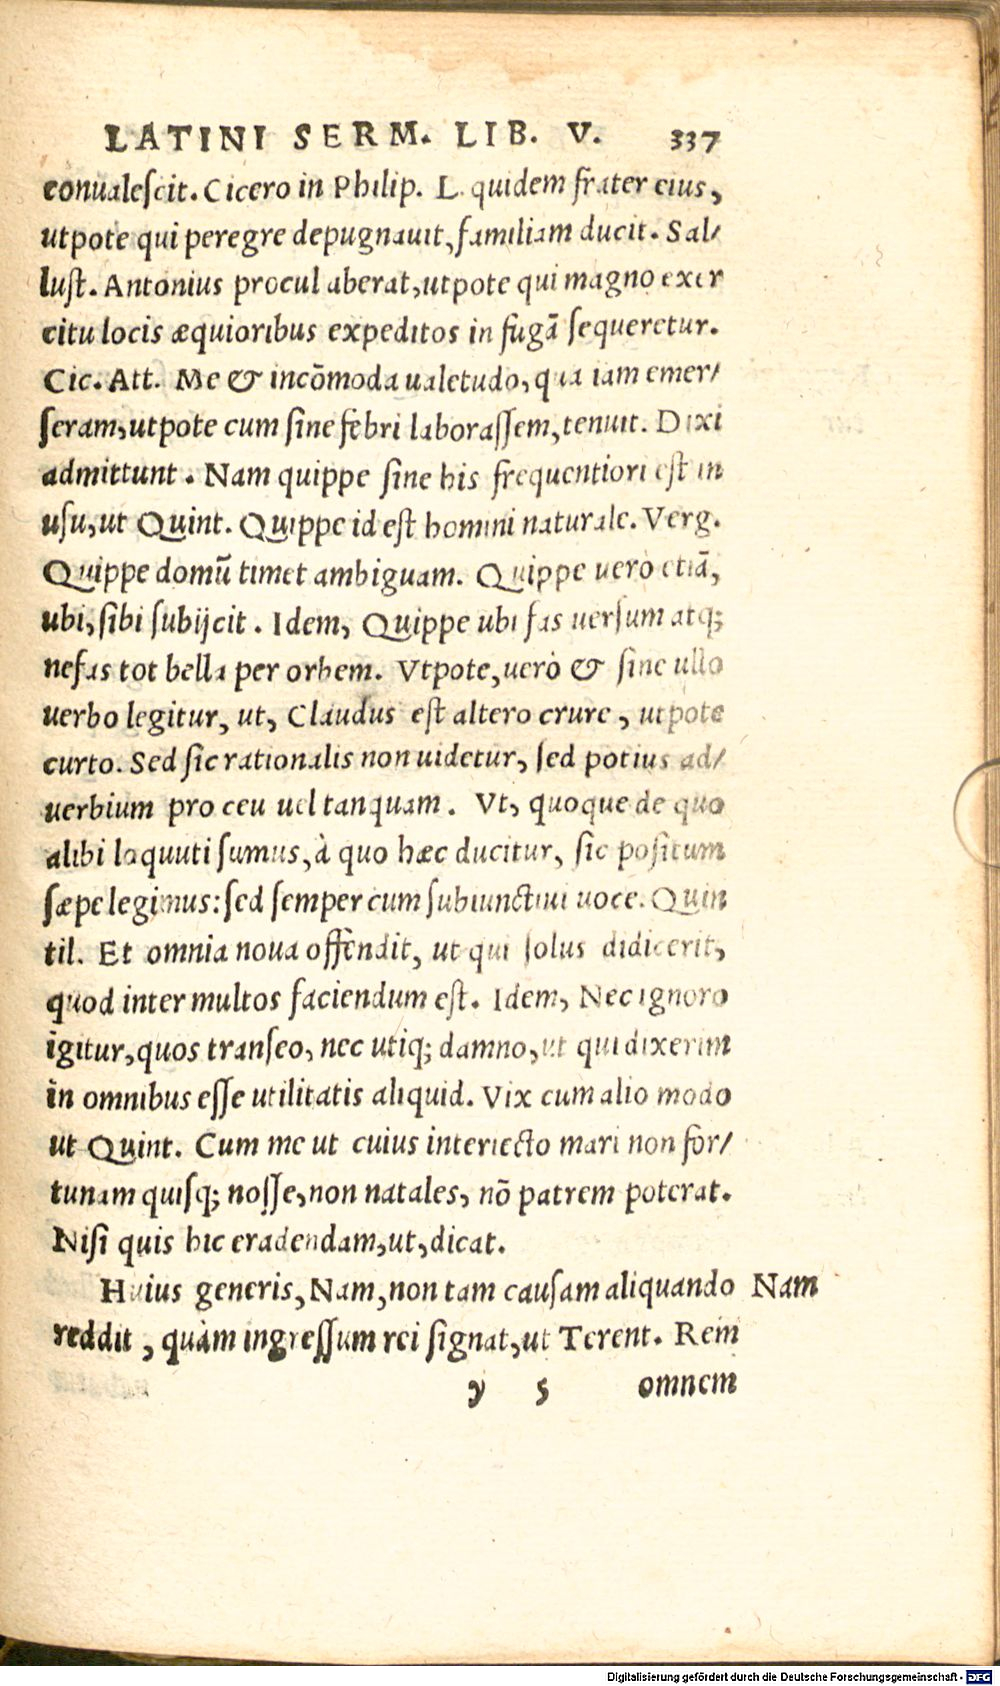 LATINI SERM. LIB. V. 337
conualescit. Cicero in Philip. L. quidem frater eius,
utpote qui peregre depugnauit, familiam ducit. Sal/
lust. Antonius procul aberat, utpote qui magno exer
citu locis æquioribus expeditos in fugā sequeretur.
Cic. Att. Me & incōmoda ualetudo, qua iam emer/
seram, utpote cum sine febri laborassem, tenuit. Dixi
admittunt. Nam quippe sine his frequentiori est in
usu, ut Quint. Quippe id est homini naturale. Verg.
Quippe domū timet ambiguam. Quippe uerò etiā,
ubi, sibi subijcit. Idem, Quippe ubi fas uersum atq;
nefas tot bella per orbem. Vtpote, uerò & sine ullo
uerbo legitur, ut, Claudus est altero crure, utpote
curto. Sed sic rationalis non uidetur, sed potius ad/
uerbium pro ceu uel tanquam. Vt, quoque de quo
alibi loquuti sumus, à quo hæc ducitur, sic positum
sæpe legimus: sed semper cum subiunctiui uoce. Quin
til. Et omnia noua offendit, ut qui solus didicerit,
quod inter multos faciendum est. Idem, Nec ignoro
igitur, quos transeo, nec utiq; damno, ut qui dixerim
in omnibus esse utilitatis aliquid. Vix cum alio modo
ut Quint. Cum me ut cuius interiecto mari non for/
tunam quisq; nosse, non natales, nō patrem poterat.
Nisi quis hic eradendam, ut, dicat.
Huius generis, Nam, non tam causam aliquando Nam
reddit, quàm ingressum rei signat, ut Terent. Rem
y 5 omnem
Digitalisierung gefördert durch die Deutsche Forschungsgemeinschaft - DFG